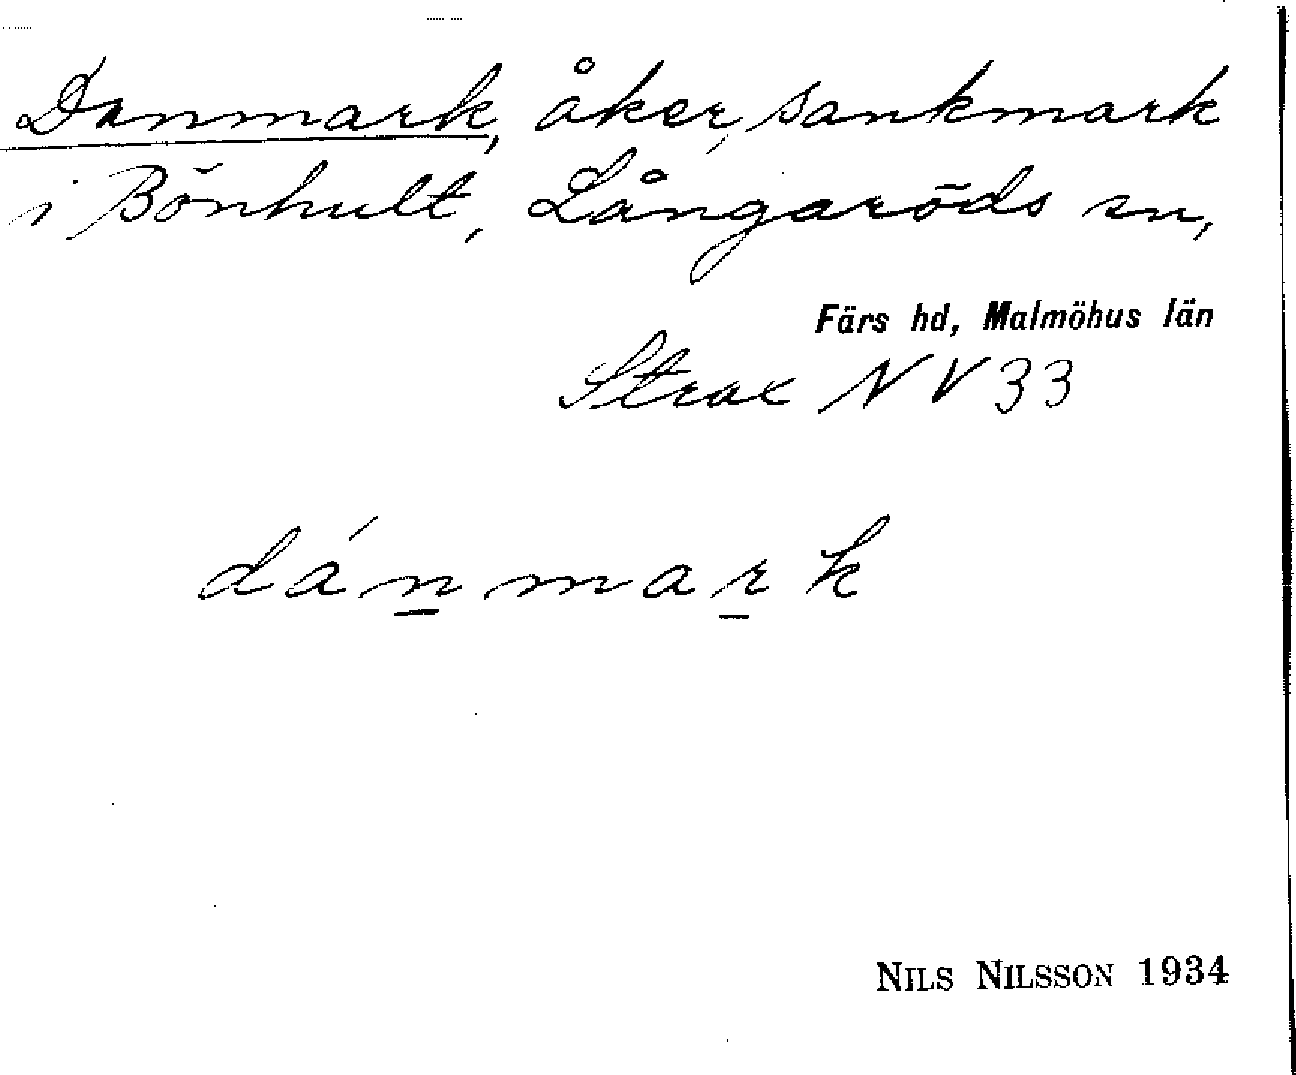 Danmark, åker, sankmark
i Bönhult, Långaröds sn,
Färs hd, Malmöhus län
Strax NV 33
dánmark
NILS NILSSON 1934